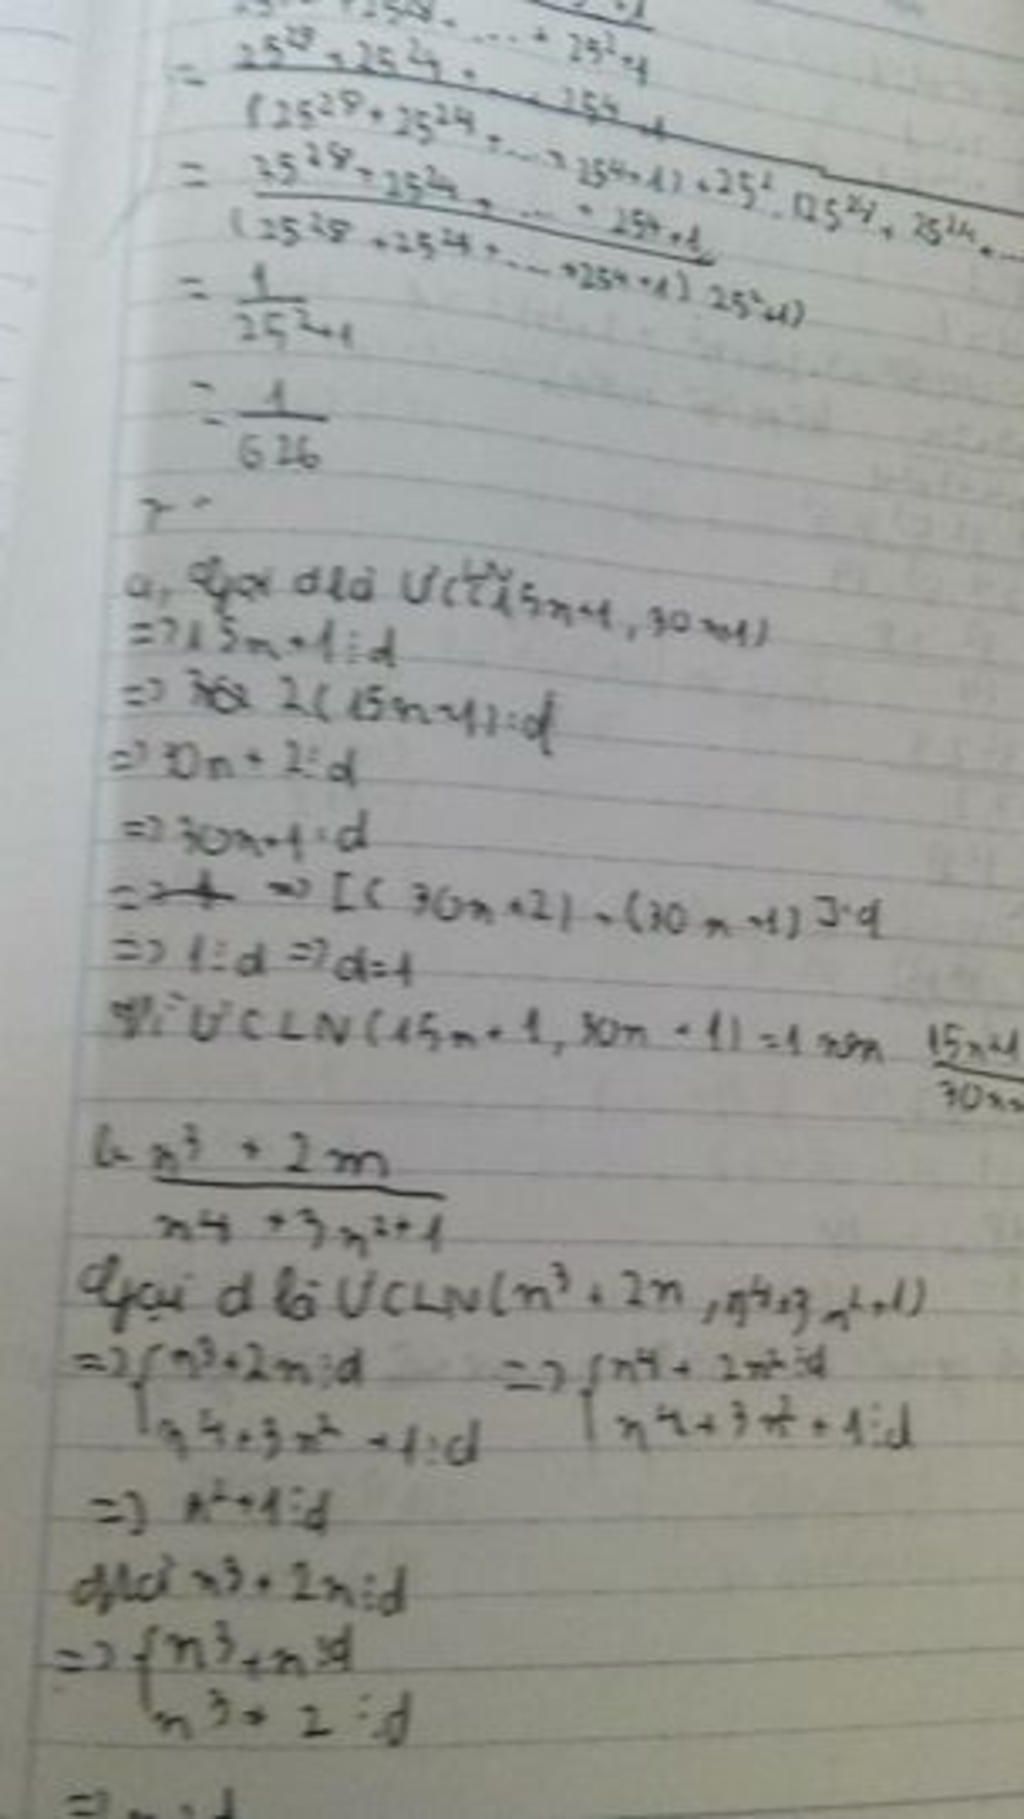 ... + 25²+1
= 25²⁸+25²⁴+ ... 25⁴+1
(25²⁸+25²⁴+...+25⁴+1)+25².(25²⁸+25²⁴+...
= 25²⁸+25²⁴+...+25⁴+1
(25²⁸+25²⁴+...+25⁴+1).25²+1)
= 1
25²+1
= 1
626
a, Gọi d là ƯCLN(15n+1, 30n+1)
=> 15n+1⋮d
=> 2(15n+1)⋮d
=> 30n+2⋮d
=> 30n+1⋮d
=> => [(30n+2)-(30n+1)]⋮d
=> 1⋮d => d=1
Vì ƯCLN(15n+1, 30n+1)=1 nên 15n+1
30n+
b. n³+2n
n4+3n²+1
Gọi d là ƯCLN(n³+2n, n⁴+3n²+1)
=> { n³+2n⋮d => { n⁴+2n²⋮d
n⁴+3n²+1⋮d n⁴+3n²+1⋮d
=> n²+1⋮d
n³+2n⋮d
=> { n³+n⋮d
n³+2⋮d